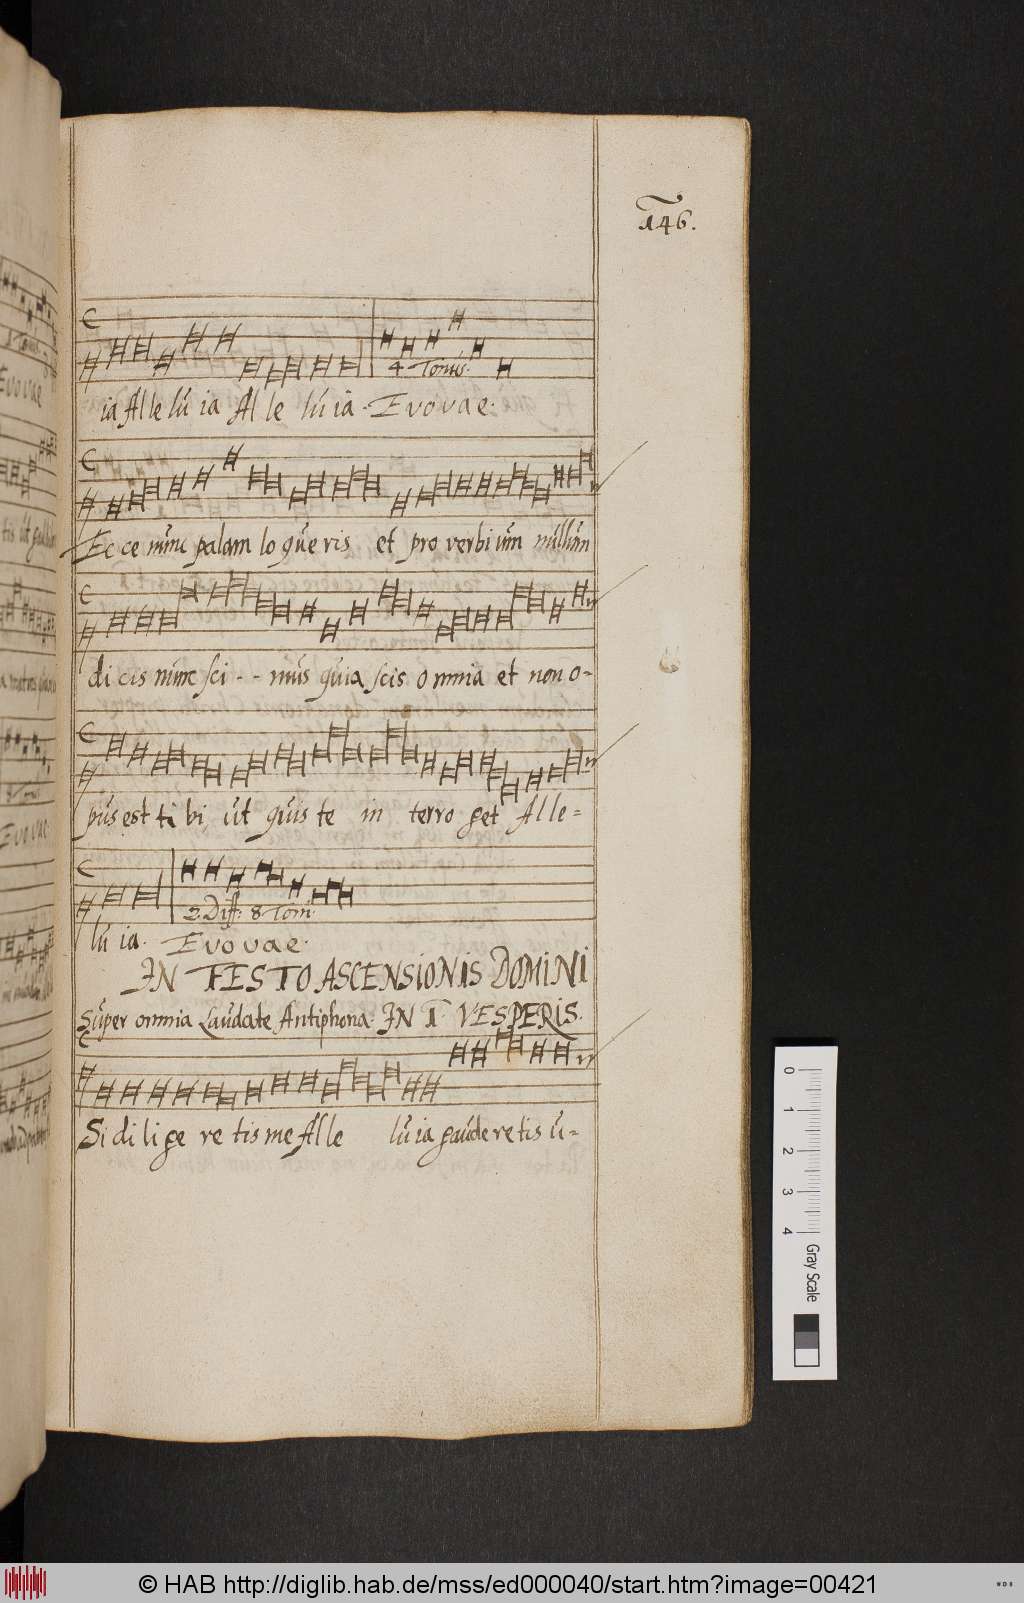 146.
4 Tonus.
ia Alle lu ia Al le lu ia. Evovae.
Ecce nunc palam lo que ris et pro verbi um nullum
di cis nunc sci - - mus quia scis omnia et non o-
pus est ti bi ut quis te in terro get Alle-
2. Diff: 8 Toni.
lu ia. Evovae.
IN FESTO ASCENSIONIS DOMINI
Super omnia Laudate Antiphona. IN I VESPERIS.
Si di li ge re tis me Alle lu ia gaude re tis u-
0 1 2 3 4 Gray Scale
© HAB http://diglib.hab.de/mss/ed000040/start.htm?image=00421